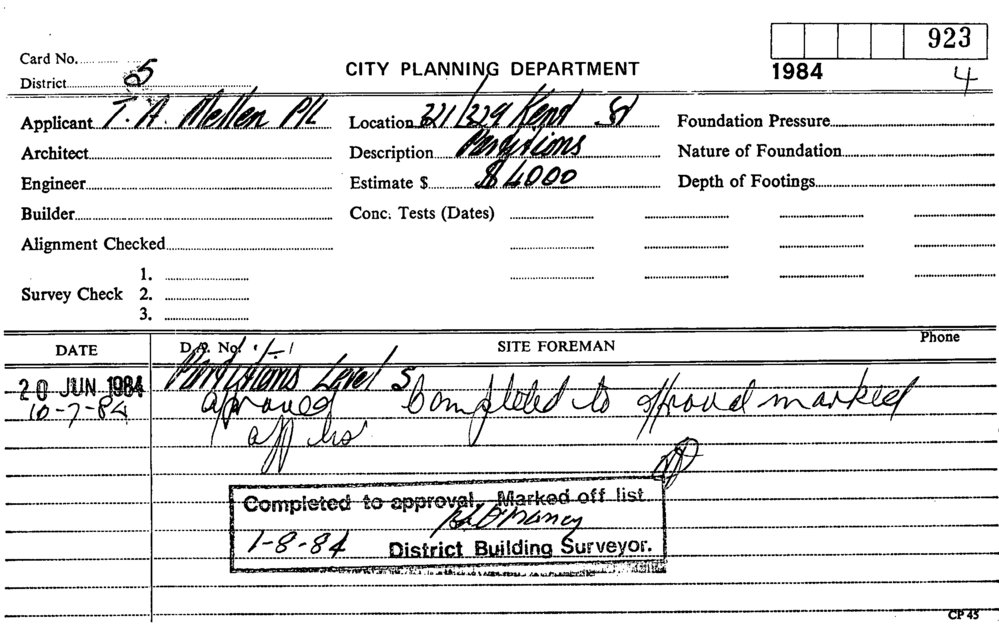 923
Card No.
1984
4
CITY PLANNING DEPARTMENT
District 05
Applicant T. A. Mellen P/L
Location 321/329 Kent St
Foundation Pressure
Architect
Description Partitions
Nature of Foundation
Engineer
Estimate $ $ 4000
Depth of Footings
Builder
Conc. Tests (Dates)
Alignment Checked
1.
Survey Check 2.
3.
DATE D.A. No. SITE FOREMAN Phone
20 JUN 1984 Partitions Level 5
10-7-84 aproved Completed to approval marked
off
Completed to approval. Marked off list
1-8-84 District Building Surveyor.
CP 45